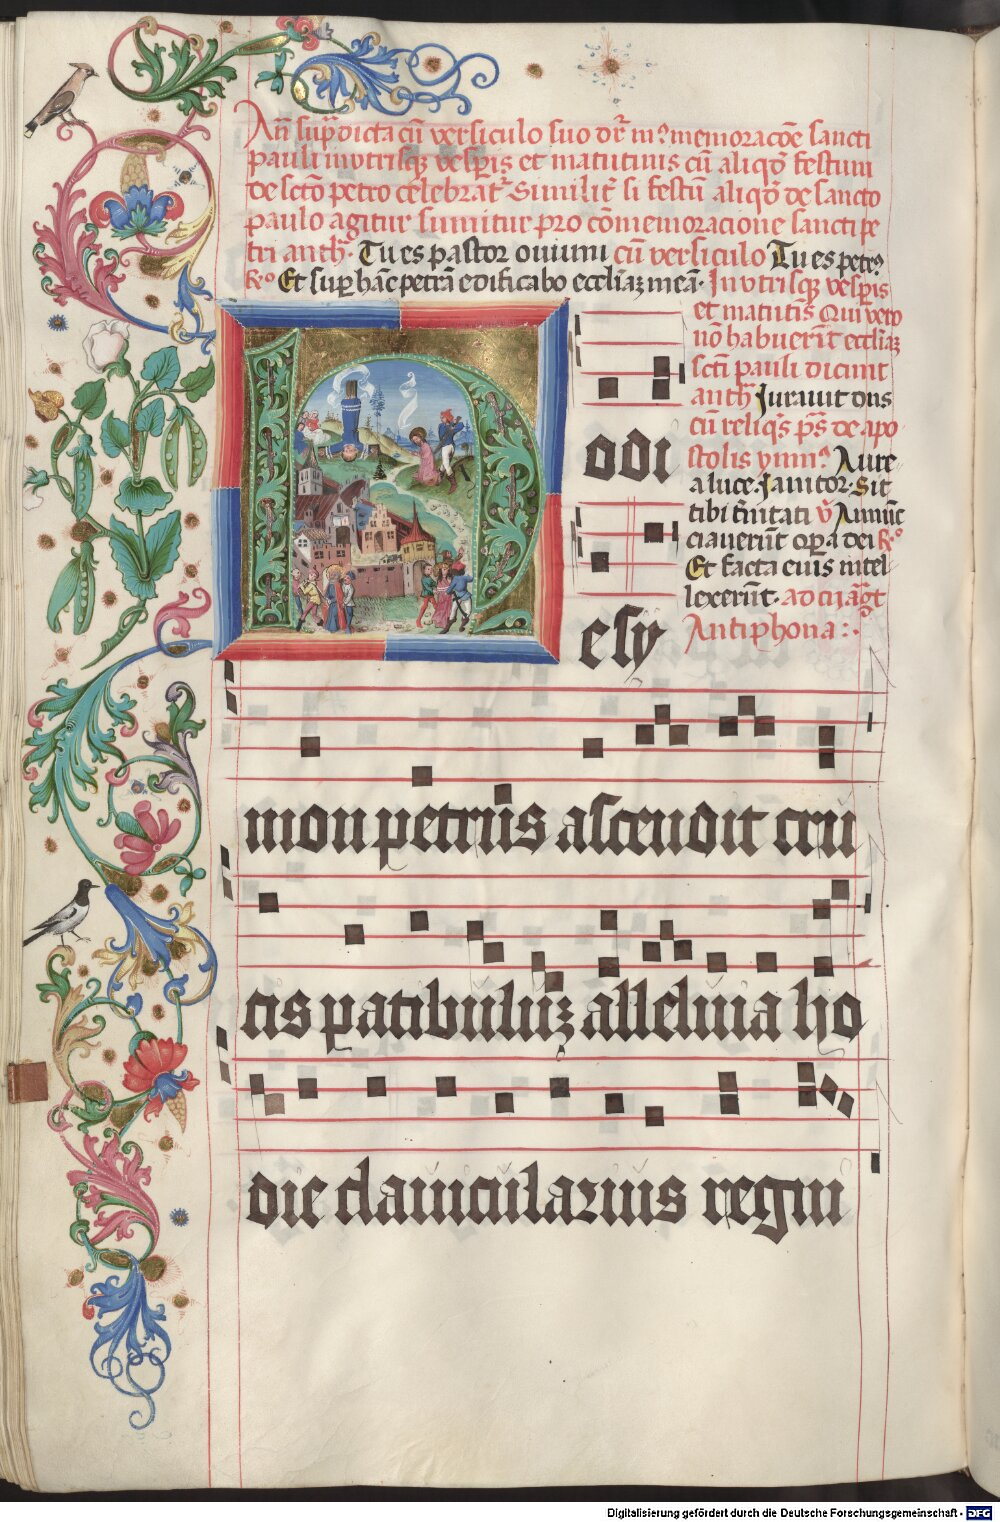 Añ sup̄dicta cū versiculo suo dr̄ in memoracōe sancti
pauli in utrisq; vesp̄is et matutinis cū aliqd̄ festum
de scto petro celebrat᷑ Similit᷑ si festū aliqd̄ de sancto
paulo agitur sumitur pro cōmemoracione sancti pe
tri anth̄. Tu es pastor ovium cū versiculo Tu es petr᷒
R̄o Et sup̄ hāc petrā edificabo eccl̄iaꝫ meā. In utrisq; vesp̄is
et matutīs Qui vero
nō habuerīt eccl̄iaꝫ
sct̄i pauli dicunt
anth̄ Juravit dn̄s
cū reliq̄s ps̄ de apo
stolis ymn᷒ Aure
a luce. Janitor. Sit
tibi t̄nitati v̄ Annūc
ciaverūt op̄a dei R̄o
Et facta euis intel
lexerūt. ad
Antiphona:.
Hodi
e sy
mon petrus ascendit cru
cis patibulūꝫ alleluia ho
die clavicularius regni
Digitalisierung gefördert durch die Deutsche Forschungsgemeinschaft - DFG